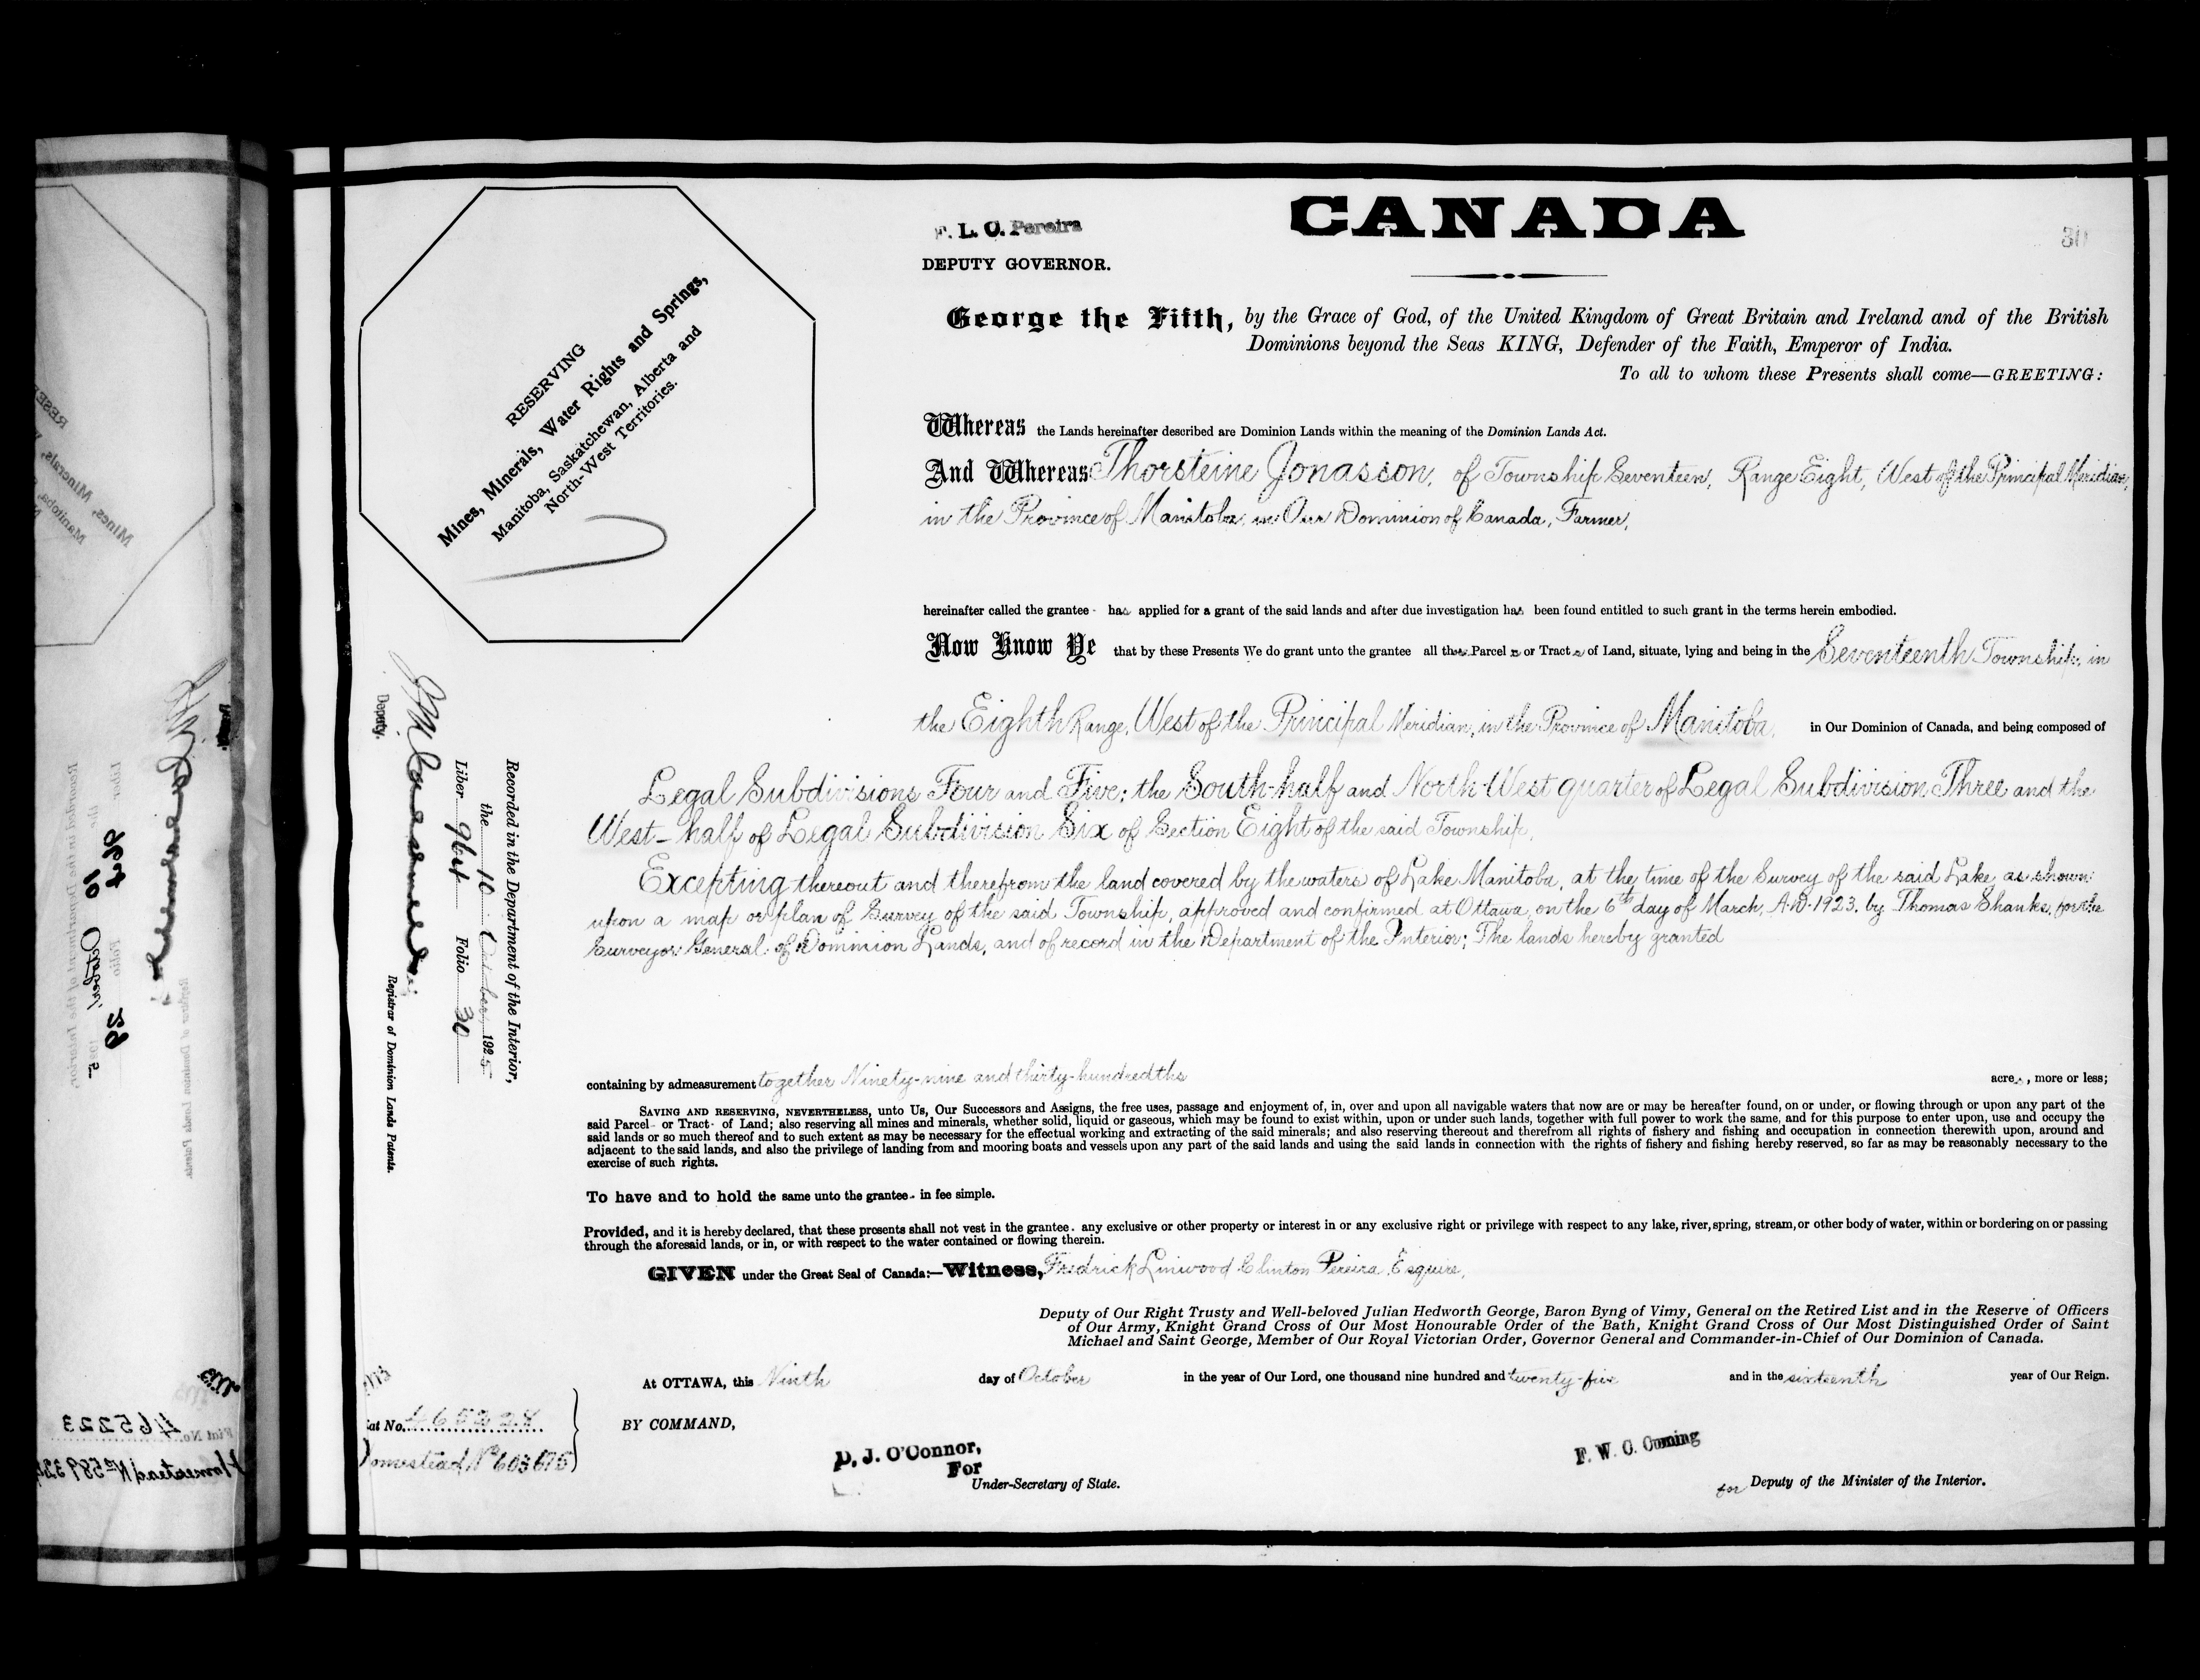 CANADA
F. L. C. Pereira
DEPUTY GOVERNOR.
30
George the Fifth, by the Grace of God, of the United Kingdom of Great Britain and Ireland and of the British
Dominions beyond the Seas KING, Defender of the Faith, Emperor of India.
To all to whom these Presents shall come—GREETING:
RESERVING
Mines, Minerals, Water Rights and Springs,
Manitoba, Saskatchewan, Alberta and
North-West Territories.
Whereas the Lands hereinafter described are Dominion Lands within the meaning of the Dominion Lands Act.
And Whereas Thorsteine Jonasson, of Township Seventeen, Range Eight, West of the Principal Meridian,
in the Province of Manitoba, in Our Dominion of Canada, Farmer,
hereinafter called the grantee has applied for a grant of the said lands and after due investigation has been found entitled to such grant in the terms herein embodied.
Now Know Ye that by these Presents We do grant unto the grantee all those Parcels or Tracts of Land, situate, lying and being in the Seventeenth Township, in
the Eighth Range, West of the Principal Meridian, in the Province of Manitoba, in Our Dominion of Canada, and being composed of
Legal Subdivisions Four and Five; the South-half and North-West quarter of Legal Subdivision Three and the
West-half of Legal Subdivision Six of Section Eight of the said Township,
Excepting thereout and therefrom the land covered by the waters of Lake Manitoba, at the time of the Survey of the said Lake, as shown
upon a map or plan of Survey of the said Township, approved and confirmed at Ottawa, on the 6th day of March, A.D. 1923, by Thomas Shanks, for the
Surveyor General of Dominion Lands, and of record in the Department of the Interior; The lands hereby granted
containing by admeasurement together Ninety-nine and thirty-hundredths acres, more or less;
SAVING AND RESERVING, NEVERTHELESS, unto Us, Our Successors and Assigns, the free uses, passage and enjoyment of, in, over and upon all navigable waters that now are or may be hereafter found, on or under, or flowing through or upon any part of the
said Parcel or Tract of Land; also reserving all mines and minerals, whether solid, liquid or gaseous, which may be found to exist within, upon or under such lands, together with full power to work the same, and for this purpose to enter upon, use and occupy the
said lands or so much thereof and to such extent as may be necessary for the effectual working and extracting of the said minerals; and also reserving thereout and therefrom all rights of fishery and fishing and occupation in connection therewith upon, around and
adjacent to the said lands, and also the privilege of landing from and mooring boats and vessels upon any part of the said lands and using the said lands in connection with the rights of fishery and fishing hereby reserved, so far as may be reasonably necessary to the
exercise of such rights.
To have and to hold the same unto the grantee in fee simple.
Provided, and it is hereby declared, that these presents shall not vest in the grantee any exclusive or other property or interest in or any exclusive right or privilege with respect to any lake, river, spring, stream, or other body of water, within or bordering on or passing
through the aforesaid lands, or in, or with respect to the water contained or flowing therein.
GIVEN under the Great Seal of Canada:—Witness, Fredrick Linwood Clinton Pereira, Esquire,
Deputy of Our Right Trusty and Well-beloved Julian Hedworth George, Baron Byng of Vimy, General on the Retired List and in the Reserve of Officers
of Our Army, Knight Grand Cross of Our Most Honourable Order of the Bath, Knight Grand Cross of Our Most Distinguished Order of Saint
Michael and Saint George, Member of Our Royal Victorian Order, Governor General and Commander-in-Chief of Our Dominion of Canada.
At OTTAWA, this Ninth day of October in the year of Our Lord, one thousand nine hundred and twenty-five and in the sixteenth year of Our Reign.
BY COMMAND,
D. J. O'Connor,
For
Under-Secretary of State.
F. W. C. Cuming
for Deputy of the Minister of the Interior.
Recorded in the Department of the Interior,
the 10 October, 1925
Liber 964 Folio 30
Deputy. Registrar of Dominion Lands Patents.
iat No.
omestead No 603675
Recorded in the Department of the Interior,
the 10 October, 1925
Liber 964 Folio 29
Registrar of Dominion Lands Patents.
Fiat No. 465223
Homestead No